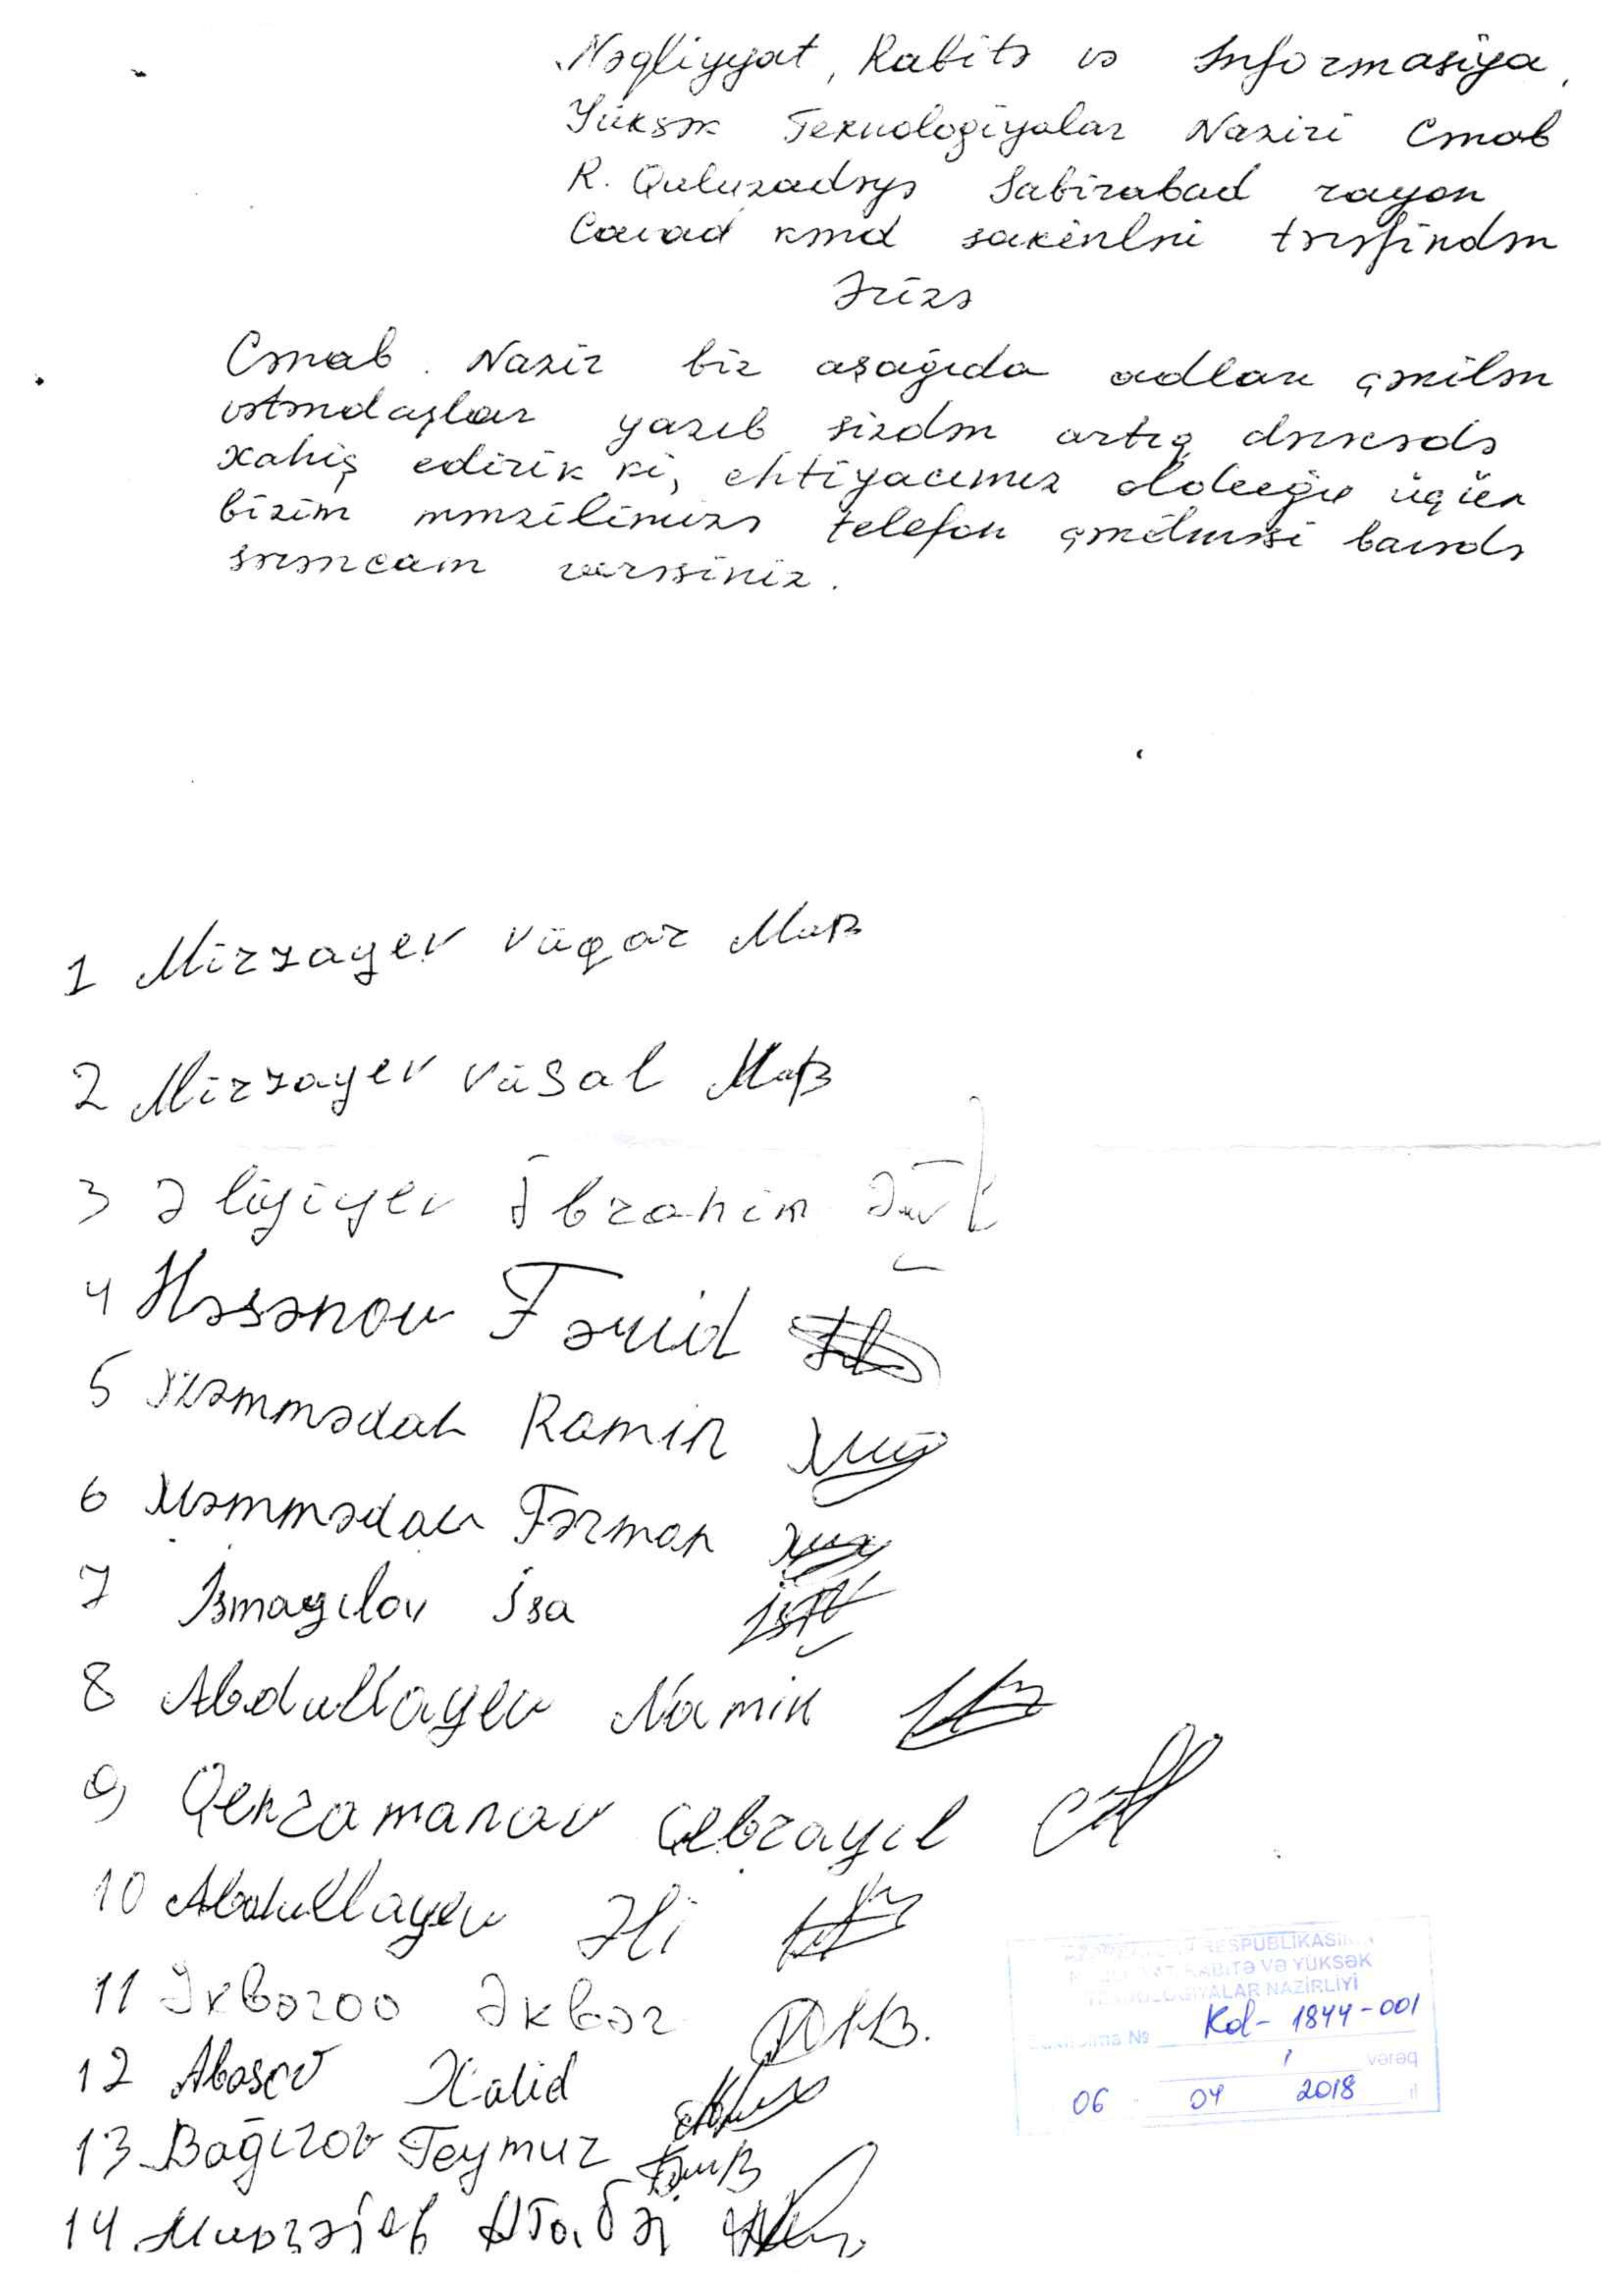 Nəqliyyat, Rabitə və İnformasiya,
Yüksək Texnologiyalar Naziri Cənab
R. Quluzadəyə Sabirabad rayon
Cavad kənd sakinləri tərəfindən
Ərizə
Cənab. Nazir biz aşağıda adları çəkilən
vətəndaşlar yazıb sizdən artıq dərəcədə
xahiş edirik ki, ehtiyacımız olduğu üçün
bizim mənzilimizə telefon çəkilməsi barədə
sərəncam verəsiniz.
1 Mirzayev Vüqar
2 Mirzayev Vüsal
3 Əliyiyev İbrahim
4 Həsənov Fərid
5 Məmmədov Ramin
6 Məmmədov Fərman
7 İsmayılov İsa
8 Abdullayev Namik
9 Qehramanov Cebrayıl
10 Abdullayev Əli
11 Əkbərov Əkbər
12 Abasov Xalid
13 Bağırov Teymur
14 Мирзәјев Атабәј
RESPUBLİKASININ
RABİTƏ VƏ YÜKSƏK
TEXNOLOGİYALAR NAZİRLİYİ
№ Kol-1844-001
1 vərəq
06 04 2018 il